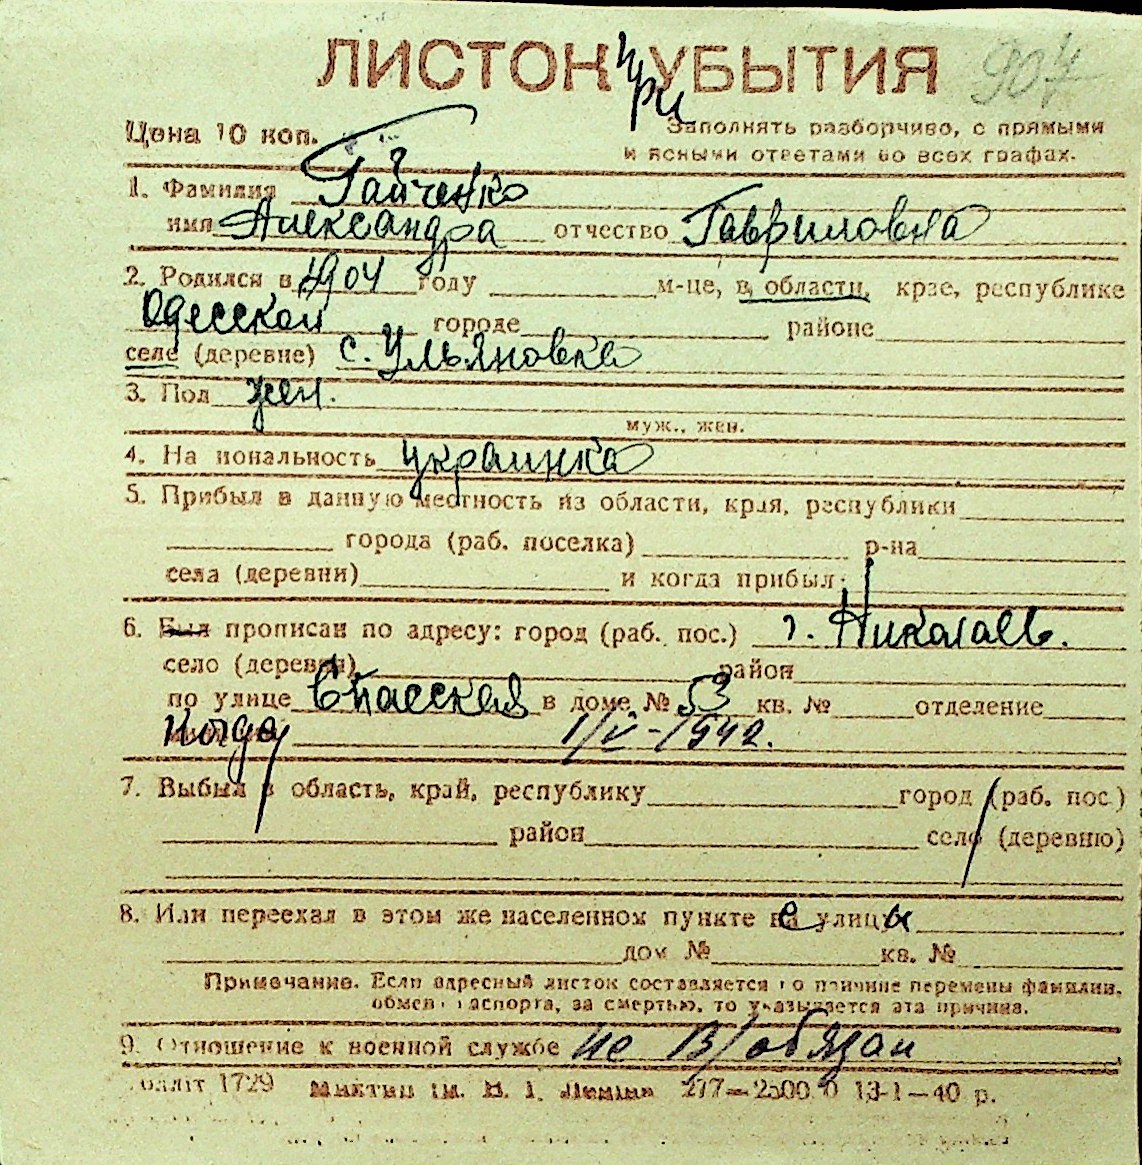 ЛИСТОК УБЫТИЯ
при
904
Цена 10 коп.
Заполнять разборчиво, с прямыми
и ясными ответами во всех графах.
1. Фамилия Гайченко
имя Александра отчество Гавриловна
2. Родился в 1904 году м-це, в области, крае, республике
Одесской городе районе
селе (деревне) с. Ульяновка
3. Пол жен.
муж., жен.
4. На иональность украинка
5. Прибыл в данную местность из области, края, республики
города (раб. поселка) р-на
села (деревни) и когда прибыл:
6. Был прописан по адресу: город (раб. пос.) г. Николаев.
село (деревня) район
по улице Спасская в доме № 53 кв. № отделение
Когда 1/V-1942.
7. Выбыл в область, край, республику город (раб. пос.)
район село (деревню)
8. Или переехал в этом же населенном пункте не улицы
дом № кв. №
Примечание. Если адресный листок составляется по причине перемены фамилии,
обмен паспорта, за смертью, то указывается эта причина.
9. Отношение к военной службе не в/обязан
1729 им. В. І. Леніна 277—2500 0 13-1—40 р.